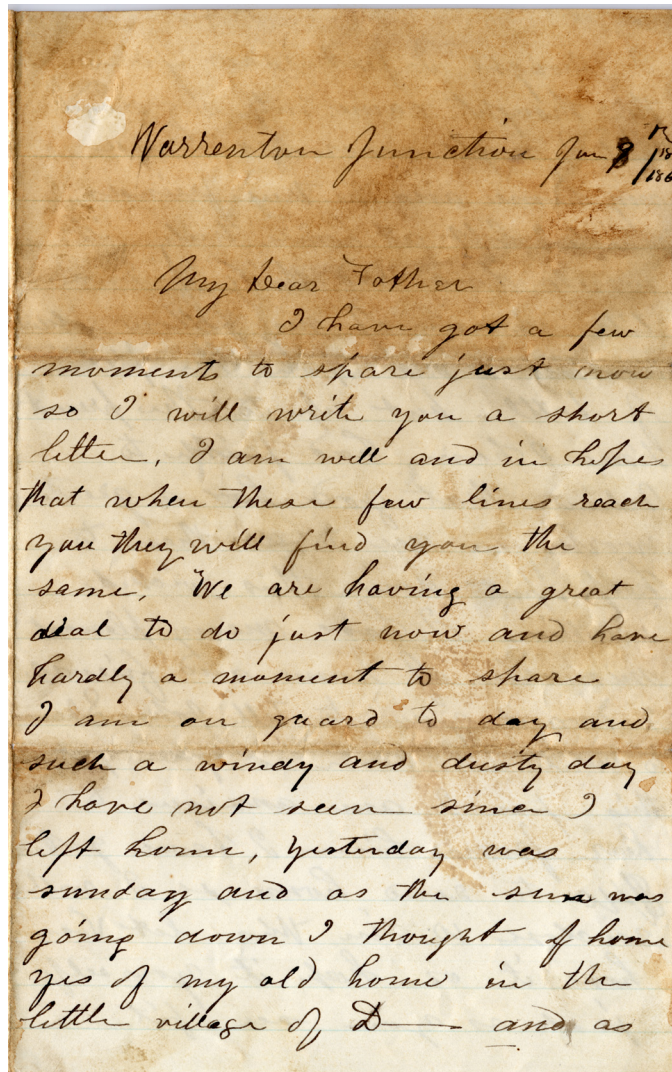 Warrenton Junction Jan 8 /
My Dear Father
I have got a few
moments to spare just now
so I will write you a short
letter, I am well and in hopes
that when these few lines reach
you they will find you the
same, We are having a great
deal to do just now and have
hardly a moment to spare
I am on guard to day and
such a windy and dusty day
I have not seen since I
left home, yesterday was
sunday and as the sun was
going down I thought of home
yes of my old home in the
little village of D—— and as